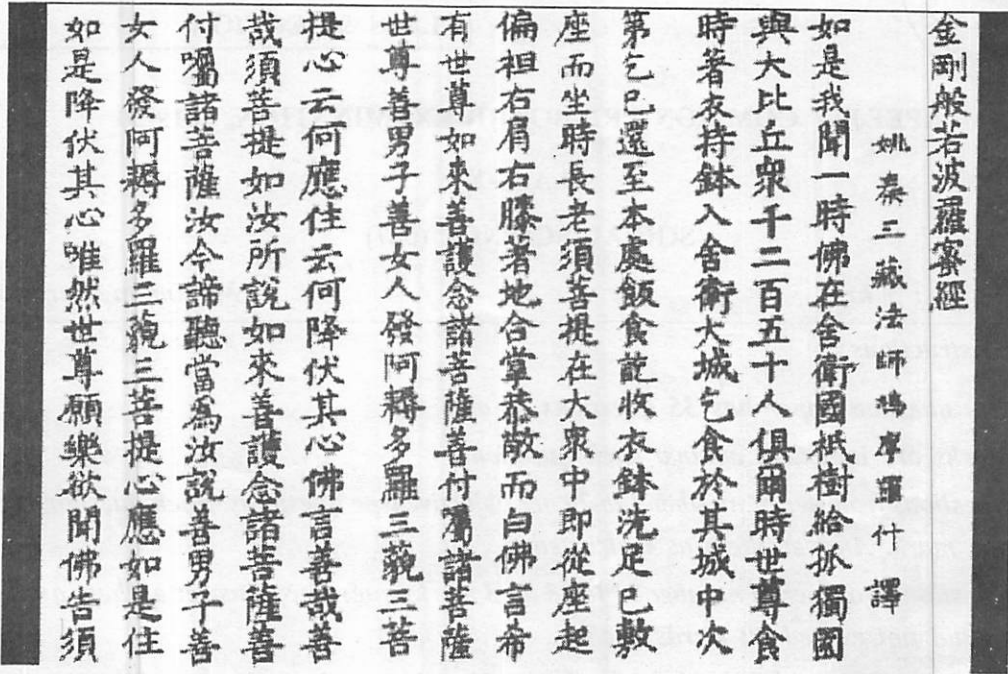 金剛般若波羅蜜經
姚秦三藏法師鳩摩羅什譯
如是我聞一時佛在舍衛國祇樹給孤獨園
與大比丘眾千二百五十人俱爾時世尊食
時著衣持鉢入舍衛大城乞食於其城中次
第乞已還至本處飯食訖收衣鉢洗足已敷
座而坐時長老須菩提在大眾中即從座起
偏袒右肩右膝著地合掌恭敬而白佛言希
有世尊如來善護念諸菩薩善付屬諸菩薩
世尊善男子善女人發阿耨多羅三藐三菩
提心云何應住云何降伏其心佛言善哉善
哉須菩提如汝所說如來善護念諸菩薩善
付囑諸菩薩汝今諦聽當為汝說善男子善
女人發阿耨多羅三藐三菩提心應如是住
如是降伏其心唯然世尊願樂欲聞佛告須